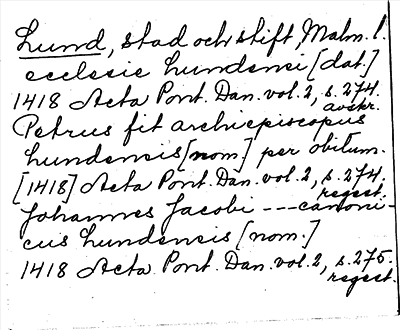 Lund, stad och stift, Malm. l.
ecclesie Lundensi [dat.]
1418 Acta Pont. Dan. vol. 2, s. 274.
avskr.
Petrus fit archiepiscopus
Lundensis [nom.] per obitum.
[1418] Acta Pont. Dan. vol. 2, s. 274.
regest.
Johannes Jacobi --- canoni-
cus Lundensis [nom.]
1418 Acta Pont. Dan. vol. 2, s. 275.
regest.